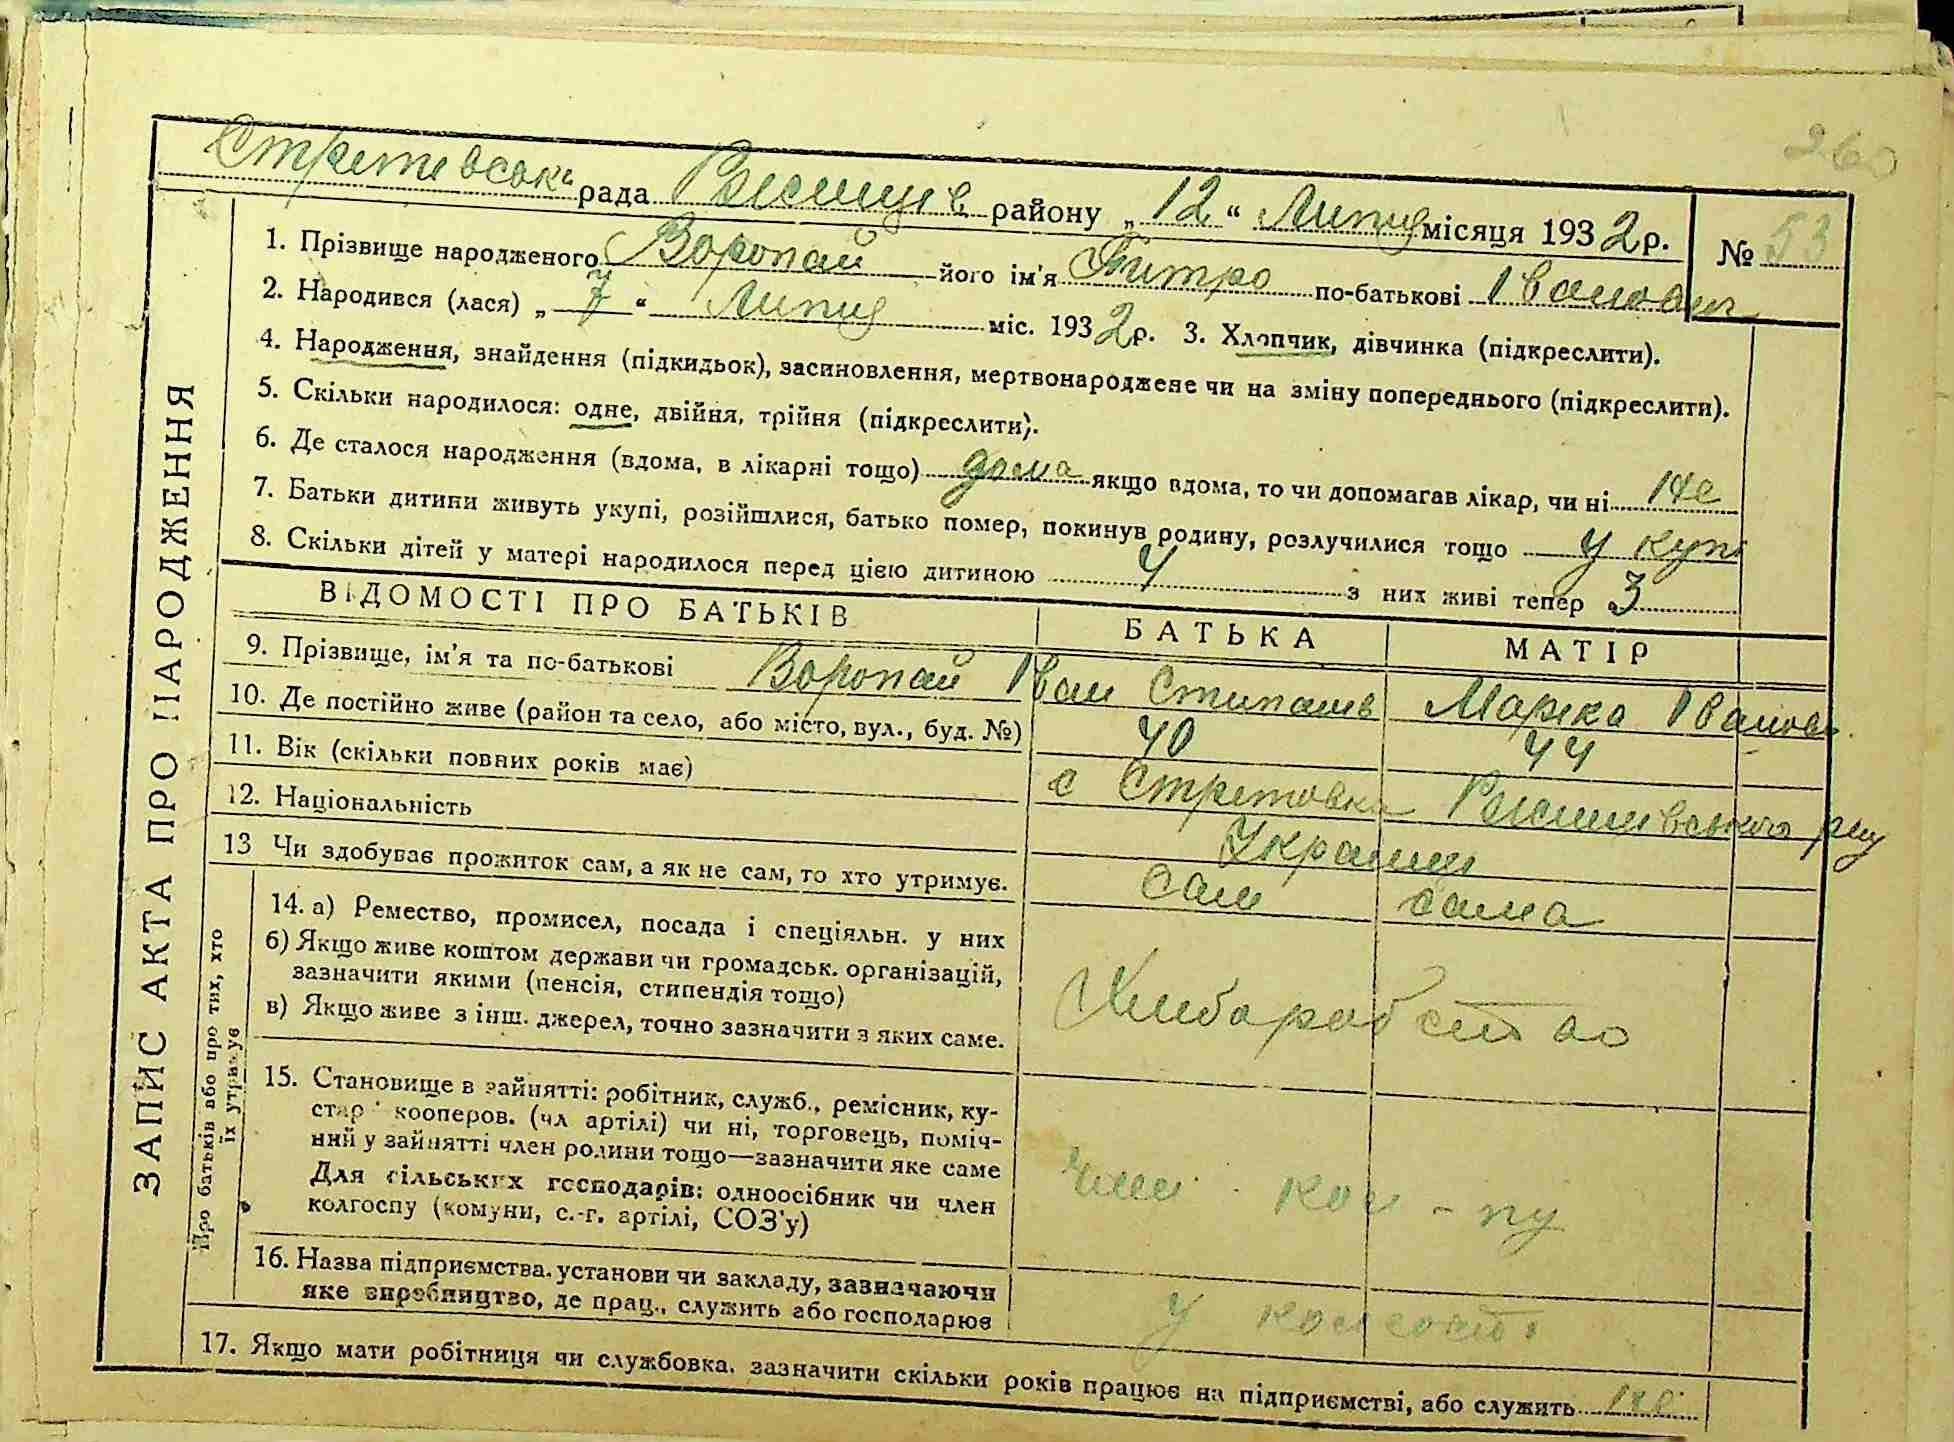 260
Стретевськ рада Ржищів району „12“ Липня місяця 1932 р. № 53
1. Прізвище народженого Воропай його ім'я Питро по-батькові Іванович
2. Народився (лася) „7“ Липня міс. 1932 р. 3. Хлопчик, дівчинка (підкреслити).
4. Народження, знайдення (підкидьок), засиновлення, мертвонароджене чи на зміну попереднього (підкреслити).
5. Скільки народилося: одне, двійня, трійня (підкреслити).
6. Де сталося народження (вдома, в лікарні тощо) дома якщо вдома, то чи допомагав лікар, чи ні не
7. Батьки дитини живуть укупі, розійшлися, батько помер, покинув родину, розлучилися тощо у купі
8. Скільки дітей у матері народилося перед цією дитиною 4 з них живі тепер 3
ВІДОМОСТІ ПРО БАТЬКІВ БАТЬКА МАТІР
9. Прізвище, ім'я та по-батькові Воропай Іван Стипанів Марека Іванов
10. Де постійно живе (район та село, або місто, вул., буд. №) 40 44
11. Вік (скільки повних років має) с Стретовка Ржишивського рну
12. Національність Українці
13 Чи здобуває прожиток сам, а як не сам, то хто утримує. сам сама
14. а) Ремество, промисел, посада і спеціяльн. у них
б) Якщо живе коштом держави чи громадськ. організацій,
зазначити якими (пенсія, стипендія тощо)
в) Якщо живе з інш. джерел, точно зазначити з яких саме.
Хлибаробство
15. Становище в зайнятті: робітник, служб., ремісник, ку-
стар кооперов. (чл артілі) чи ні, торговець, поміч-
ний у зайнятті член родини тощо—зазначити яке саме
Для сільських господарів: одноосібник чи член
колгоспу (комуни, с.-г. артілі, СОЗ'у)
член кол-пу
16. Назва підприємства, установи чи закладу, зазначаючи
яке виробництво, де прац., служить або господарює
у колгоспі
17. Якщо мати робітниця чи службовка, зазначити скільки років працює на підприємстві, або служить не
ЗАПИС АКТА ПРО НАРОДЖЕННЯ
Про батьків або про тих, хто
їх утримує